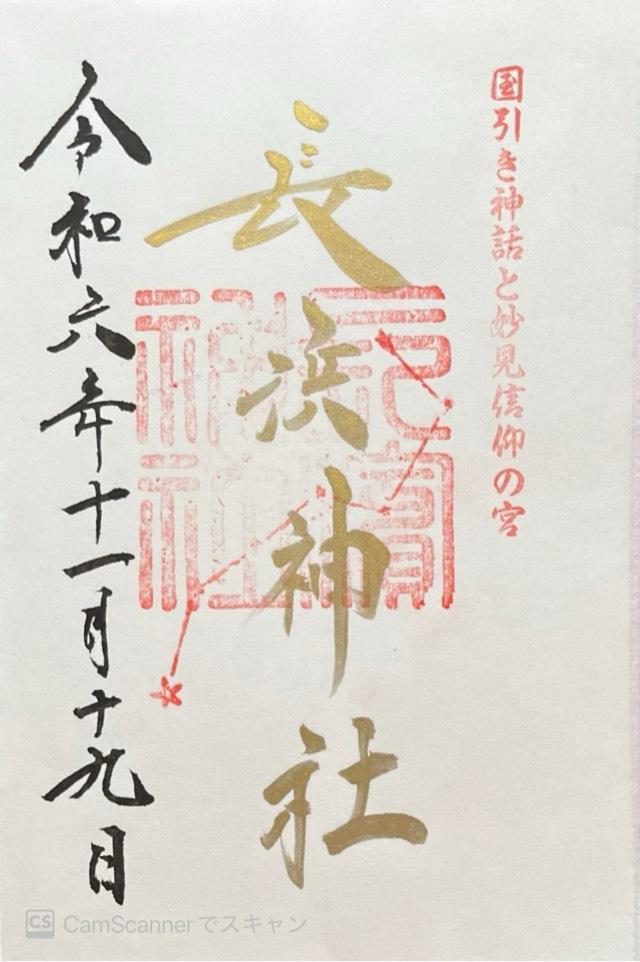 国引き神話と妙見信仰の宮
長浜神社
令和六年十一月十九日
CS CamScannerでスキャン